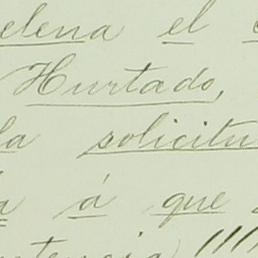 elena el
Hurtado,
la solicitu
á que
tencia